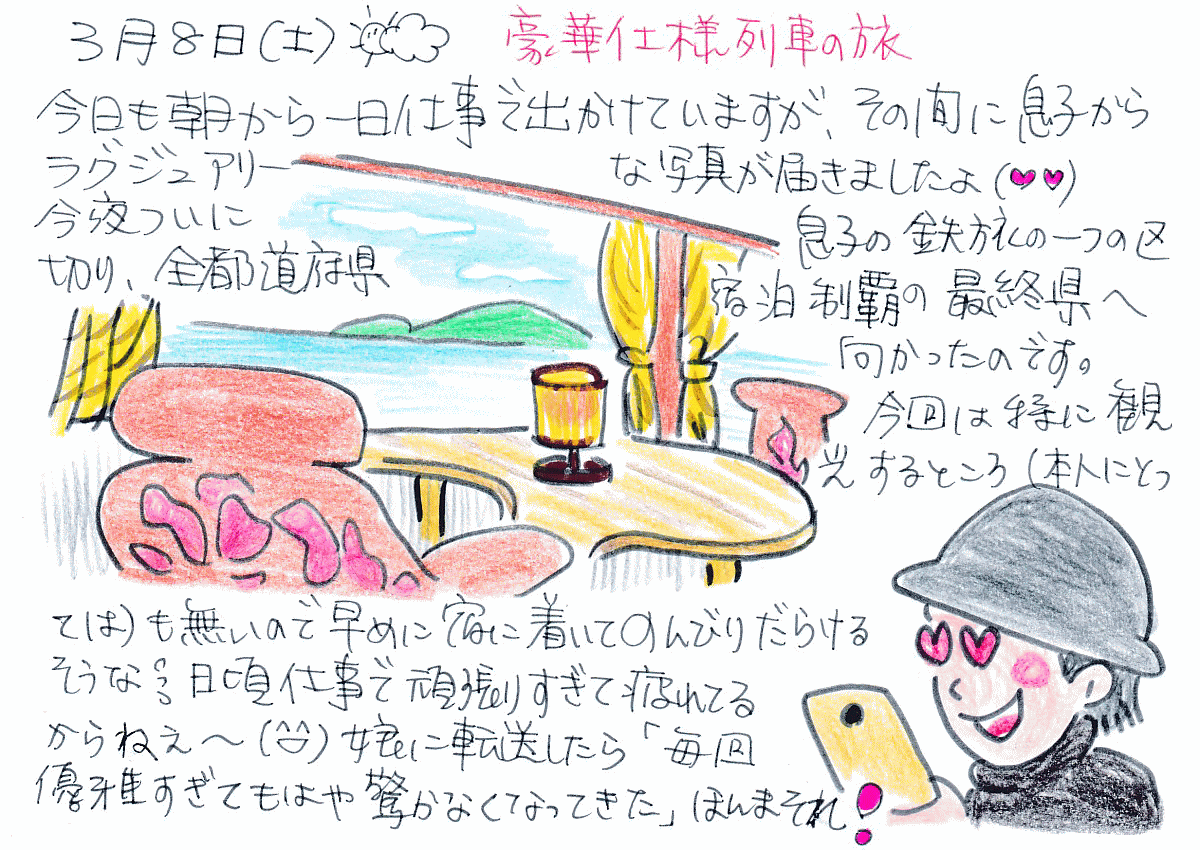 3月8日(土) 豪華仕様列車の旅
今日も朝から一日仕事で出かけていますが、その間に息子から
ラグジュアリーな写真が届きましたよ(♥♥)
今夜ついに息子の鉄旅の一つの区
切り、全都道府県宿泊制覇の最終県へ
向かったのです。
今回は特に観
光するところ(本人にとっ
ては)も無いので早めに宿に着いてのんびりだらける
そうな
日頃仕事で頑張りすぎて疲れてる
からねぇ〜(^^)娘に転送したら「毎回
優雅すぎてもはや驚かなくなってきた」ほんまそれ!